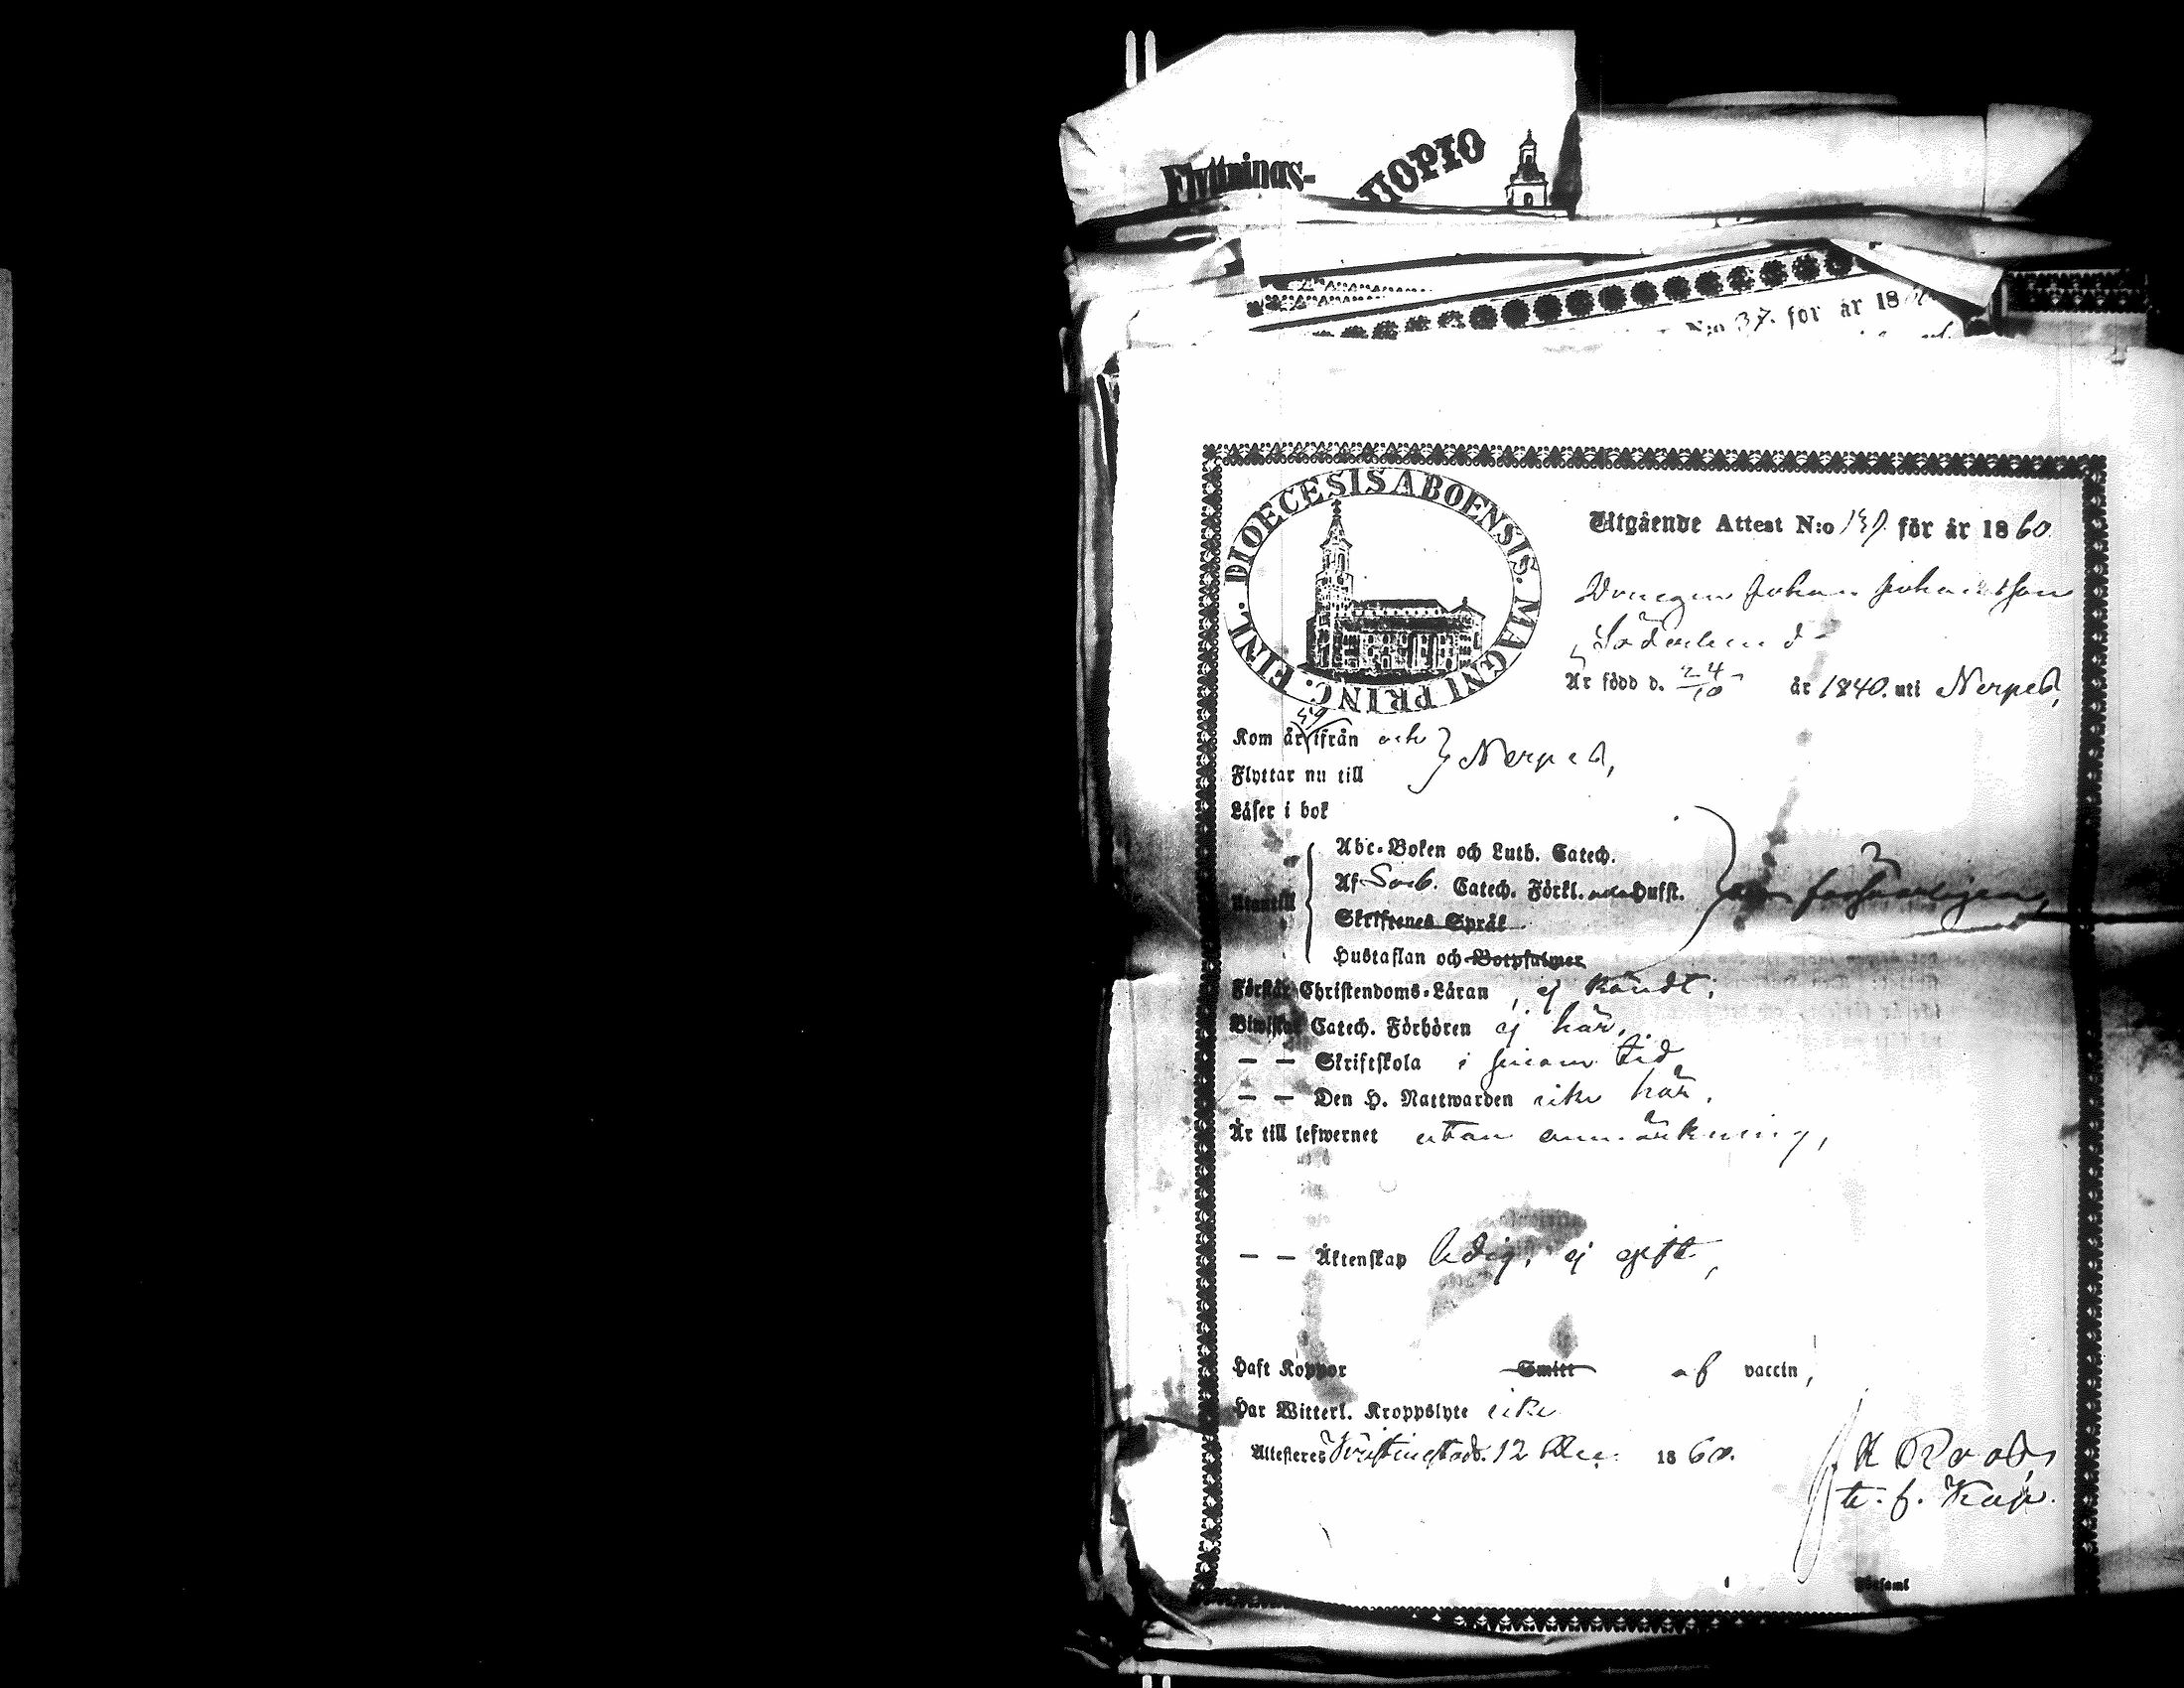 Flyttnings-
UOPIO
N:o 37. för år 18
DIOECESIS ABOENSIS. MAGNI PRINC. FINL.
Utgående Attest N:o 139 för år 1860.
Drengen Johan Johansson
Söderlund
Är född d. 24/10 år 1840. uti Nerpes,
Kom år 59 ifrån och } Nerpes,
Flyttar nu till
Läser i bok
Abc-Boken och Luth. Catech.
Utantill { Af Sveb. Catech. Förkl. Hufst.
Skriftenes Språk
Hustaflan och Botpsalmer
Förstår Christendoms-Läran, ej kändt;
Biwistat Catech. Förhören ej här,
— — Skriftskola i sinom tid
— — Den H. Nattwarden icke här.
Är till lefwernet utan anmärkning,
— — Äktenskap ledig, ej gift,
Haft Koppor Smitt af vaccin,
Har Witterl. Kroppslyte icke
Attesteras Kristinestad. 12 Dec. 1860.
t. f. Kap.
Församl